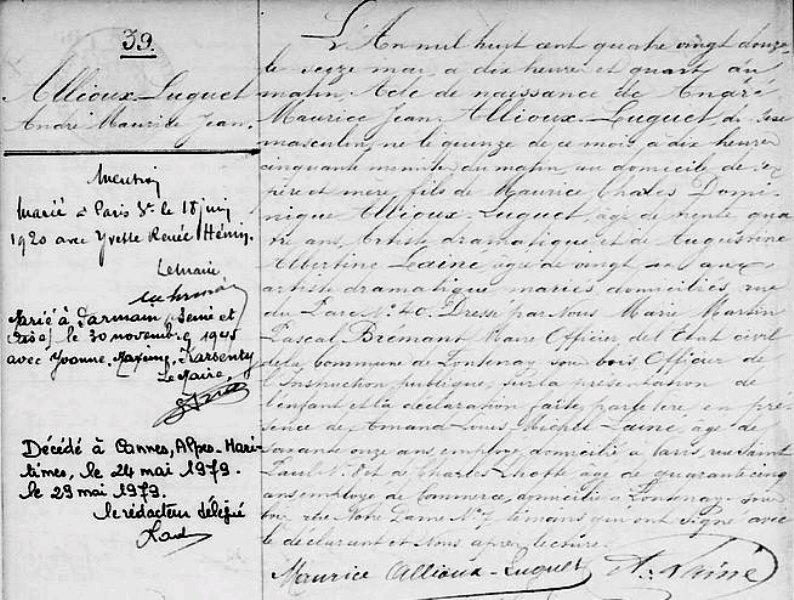 39.
Allioux-Luguet
André Maurice Jean.
Mention
Marié à Paris 3e le 18 juin
1920 avec Yvette Renée Hémin.
Le Maire
Marié à Parmain (Seine et
Oise) le 30 novembre 1945
avec Yvonne, Maxime, Karsenty
Le Maire,
Décédé à Cannes, Alpes-Mari-
times, le 24 mai 1979.
le 29 mai 1979.
le rédacteur délégué
L'An mil huit cent quatre vingt douze
le seize mai, a dix heures et quart du
matin. Acte de naissance de André
Maurice Jean Allioux-Luguet, de sexe
masculin, né le quinze de ce mois a dix heures
cinquante minutes du matin, au domicile de ses
père et mère, fils de Maurice Charles Domi-
nique Allioux-Luguet, âgé de trente qua
tre ans, Artiste dramatique et de Augustine
Albertine Lainé âgée de vingt ans,
artiste dramatique mariés domiciliés rue
du Parc No 40. Dressé par Nous Marie Martin
Pascal Brémant Maire Officier de l'Etat civil
de la Commune de Fontenay sous bois Officier de
l'Instruction publique, sur la présentation de
l'enfant et la déclaration faites par le père, en pré-
sence de Amand Louis Michel Lainé, âgé de
soixante onze ans, employé, domicilié à Paris, rue Saint
Paul No 8 et de Charles âgé de quarante cinq
ans employé de Commerce, domicilié à Fontenay sous
bois, rue Notre Dame No 7, témoins qui ont signé avec
le déclarant et Nous après lecture.
Maurice Allioux-Luguet A. Lainé